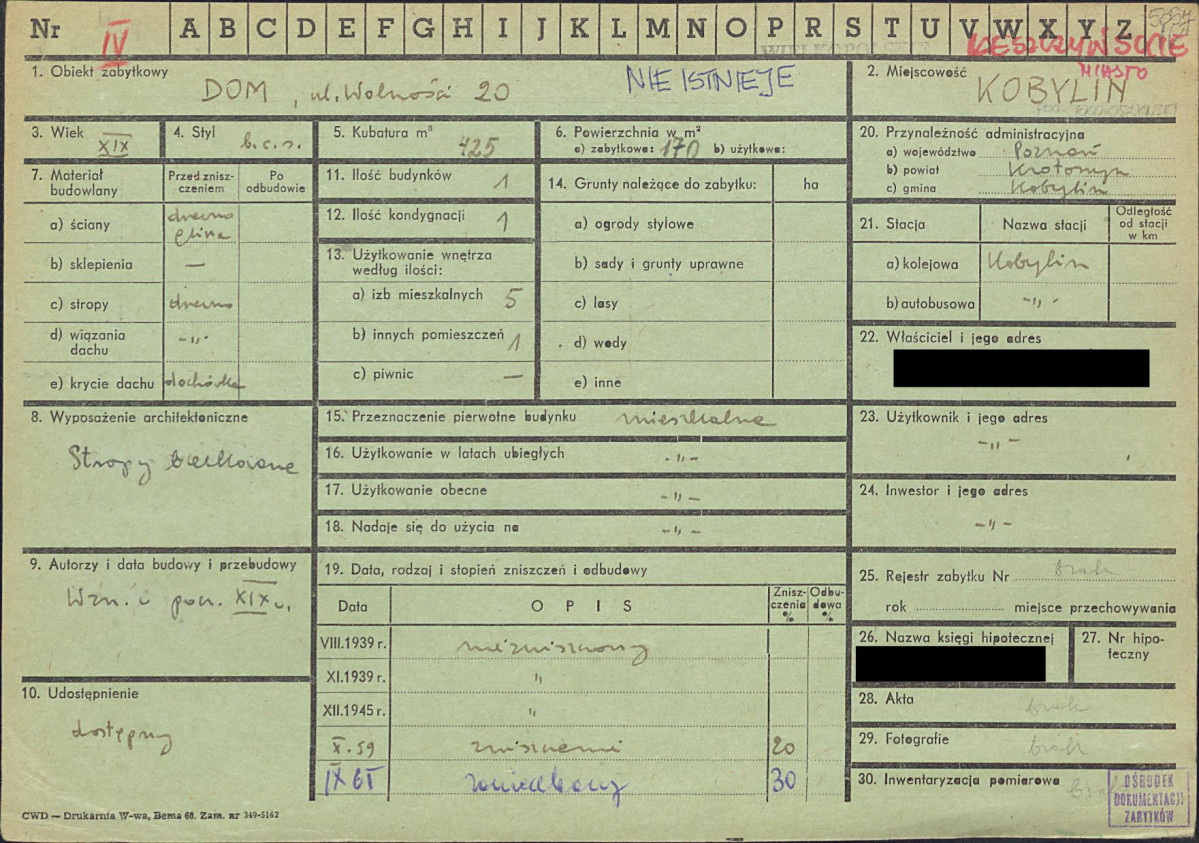 Nr IV A B C D E F G H I J K L M N O P R S T U V W X Y Z
WIELKOPOLSKIE LESZCZYŃSKIE
1. Obiekt zabytkowy
DOM, ul. Wolności 20
NIE ISTNIEJE
2. Miejscowość
MIASTO
KOBYLIN
3. Wiek
XIX
4. Styl
b.c.s.
5. Kubatura m³
425
6. Powierzchnia w m²
a) zabytkowa: 170 b) użytkowa:
7. Materiał budowlany
Przed zniszczeniem
Po odbudowie
a) ściany drewno
glina
b) sklepienia —
c) stropy drewno
d) wiązania dachu -"-
e) krycie dachu dachówka
8. Wyposażenie architektoniczne
Stropy belkowane
9. Autorzy i data budowy i przebudowy
Wzn. i poł. XIX w.
10. Udostępnienie
dostępny
11. Ilość budynków 1
12. Ilość kondygnacji 1
13. Użytkowanie wnętrza
według ilości:
a) izb mieszkalnych 5
b) innych pomieszczeń 1
c) piwnic —
14. Grunty należące do zabytku: ha
a) ogrody stylowe
b) sady i grunty uprawne
c) lasy
d) wody
e) inne
15. Przeznaczenie pierwotne budynku mieszkalne
16. Użytkowanie w latach ubiegłych -"-
17. Użytkowanie obecne -"-
18. Nadaje się do użycia na -"-
19. Data, rodzaj i stopień zniszczeń i odbudowy
Data OPIS Zniszczenia % Odbudowa %
VIII.1939 r. niezniszczony
XI.1939 r. "
XII.1945 r. "
X.59 zniszczenie 20
IX 61 zaniedbany 30
20. Przynależność administracyjna
a) województwo Poznań
b) powiat Krotoszyn
c) gmina Kobylin
21. Stacja Nazwa stacji Odległość od stacji w km
a) kolejowa Kobylin
b) autobusowa -"-
22. Właściciel i jego adres
23. Użytkownik i jego adres
-"-
24. Inwestor i jego adres
-"-
25. Rejestr zabytku Nr brak
rok miejsce przechowywania
26. Nazwa księgi hipotecznej
27. Nr hipoteczny
28. Akta brak
29. Fotografie brak
30. Inwentaryzacja pomiarowa brak
OŚRODEK
DOKUMENTACJI
ZABYTKÓW
CWD — Drukarnia W-wa, Bema 60. Zam. nr 349-5162